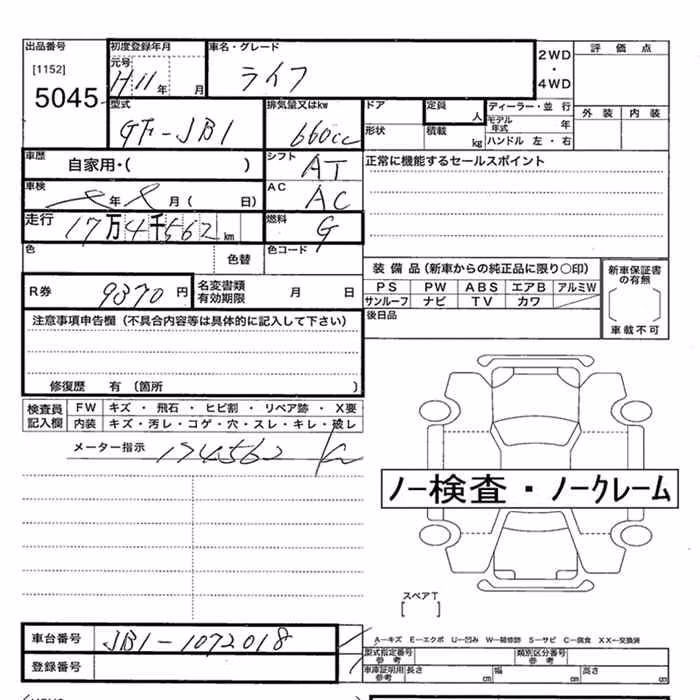 出品番号 初度登録年月 車名・グレード 評価点
[1152] 元号 2WD
5045 H11年 月 ライフ ・
4WD
型式 排気量又はkw ドア 定員 人 ディーラー・並 行 外装 内装
GF-JB1 660cc 形状 積載 kg モデル年式 年
ハンドル 左・右
車歴 自家用・( ) シフト AT 正常に機能するセールスポイント
車検 年 月 ( 日) AC AC
走行 17万4千562km 燃料 G
色 色替 色コード
装備品 (新車からの純正品に限り○印) 新車保証書の有無
R券 9370円 名変書類有効期限 月 日 PS PW ABS エアB アルミW
サンルーフ ナビ TV カワ
注意事項申告欄 (不具合内容等は具体的に記入して下さい) 後日品 車載不可
修復歴 有 〔箇所 〕
検査員 FW キズ ・ 飛石 ・ ヒビ割 ・ リペア跡 ・ X要
記入欄 内装 キズ・汚レ・コゲ・穴・スレ・キレ・破レ
メーター指示 174562 km
ノー検査・ノークレーム
スペアT
[ ]
車台番号 JB1-1072018 A―キズ E―エクボ U―凹み W―補修跡 S―サビ C―腐食 XX―交換済
型式指定番号 参考 類別区分番号 参考
登録番号 車庫証明用 参考 長さ cm 幅 cm 高さ cm